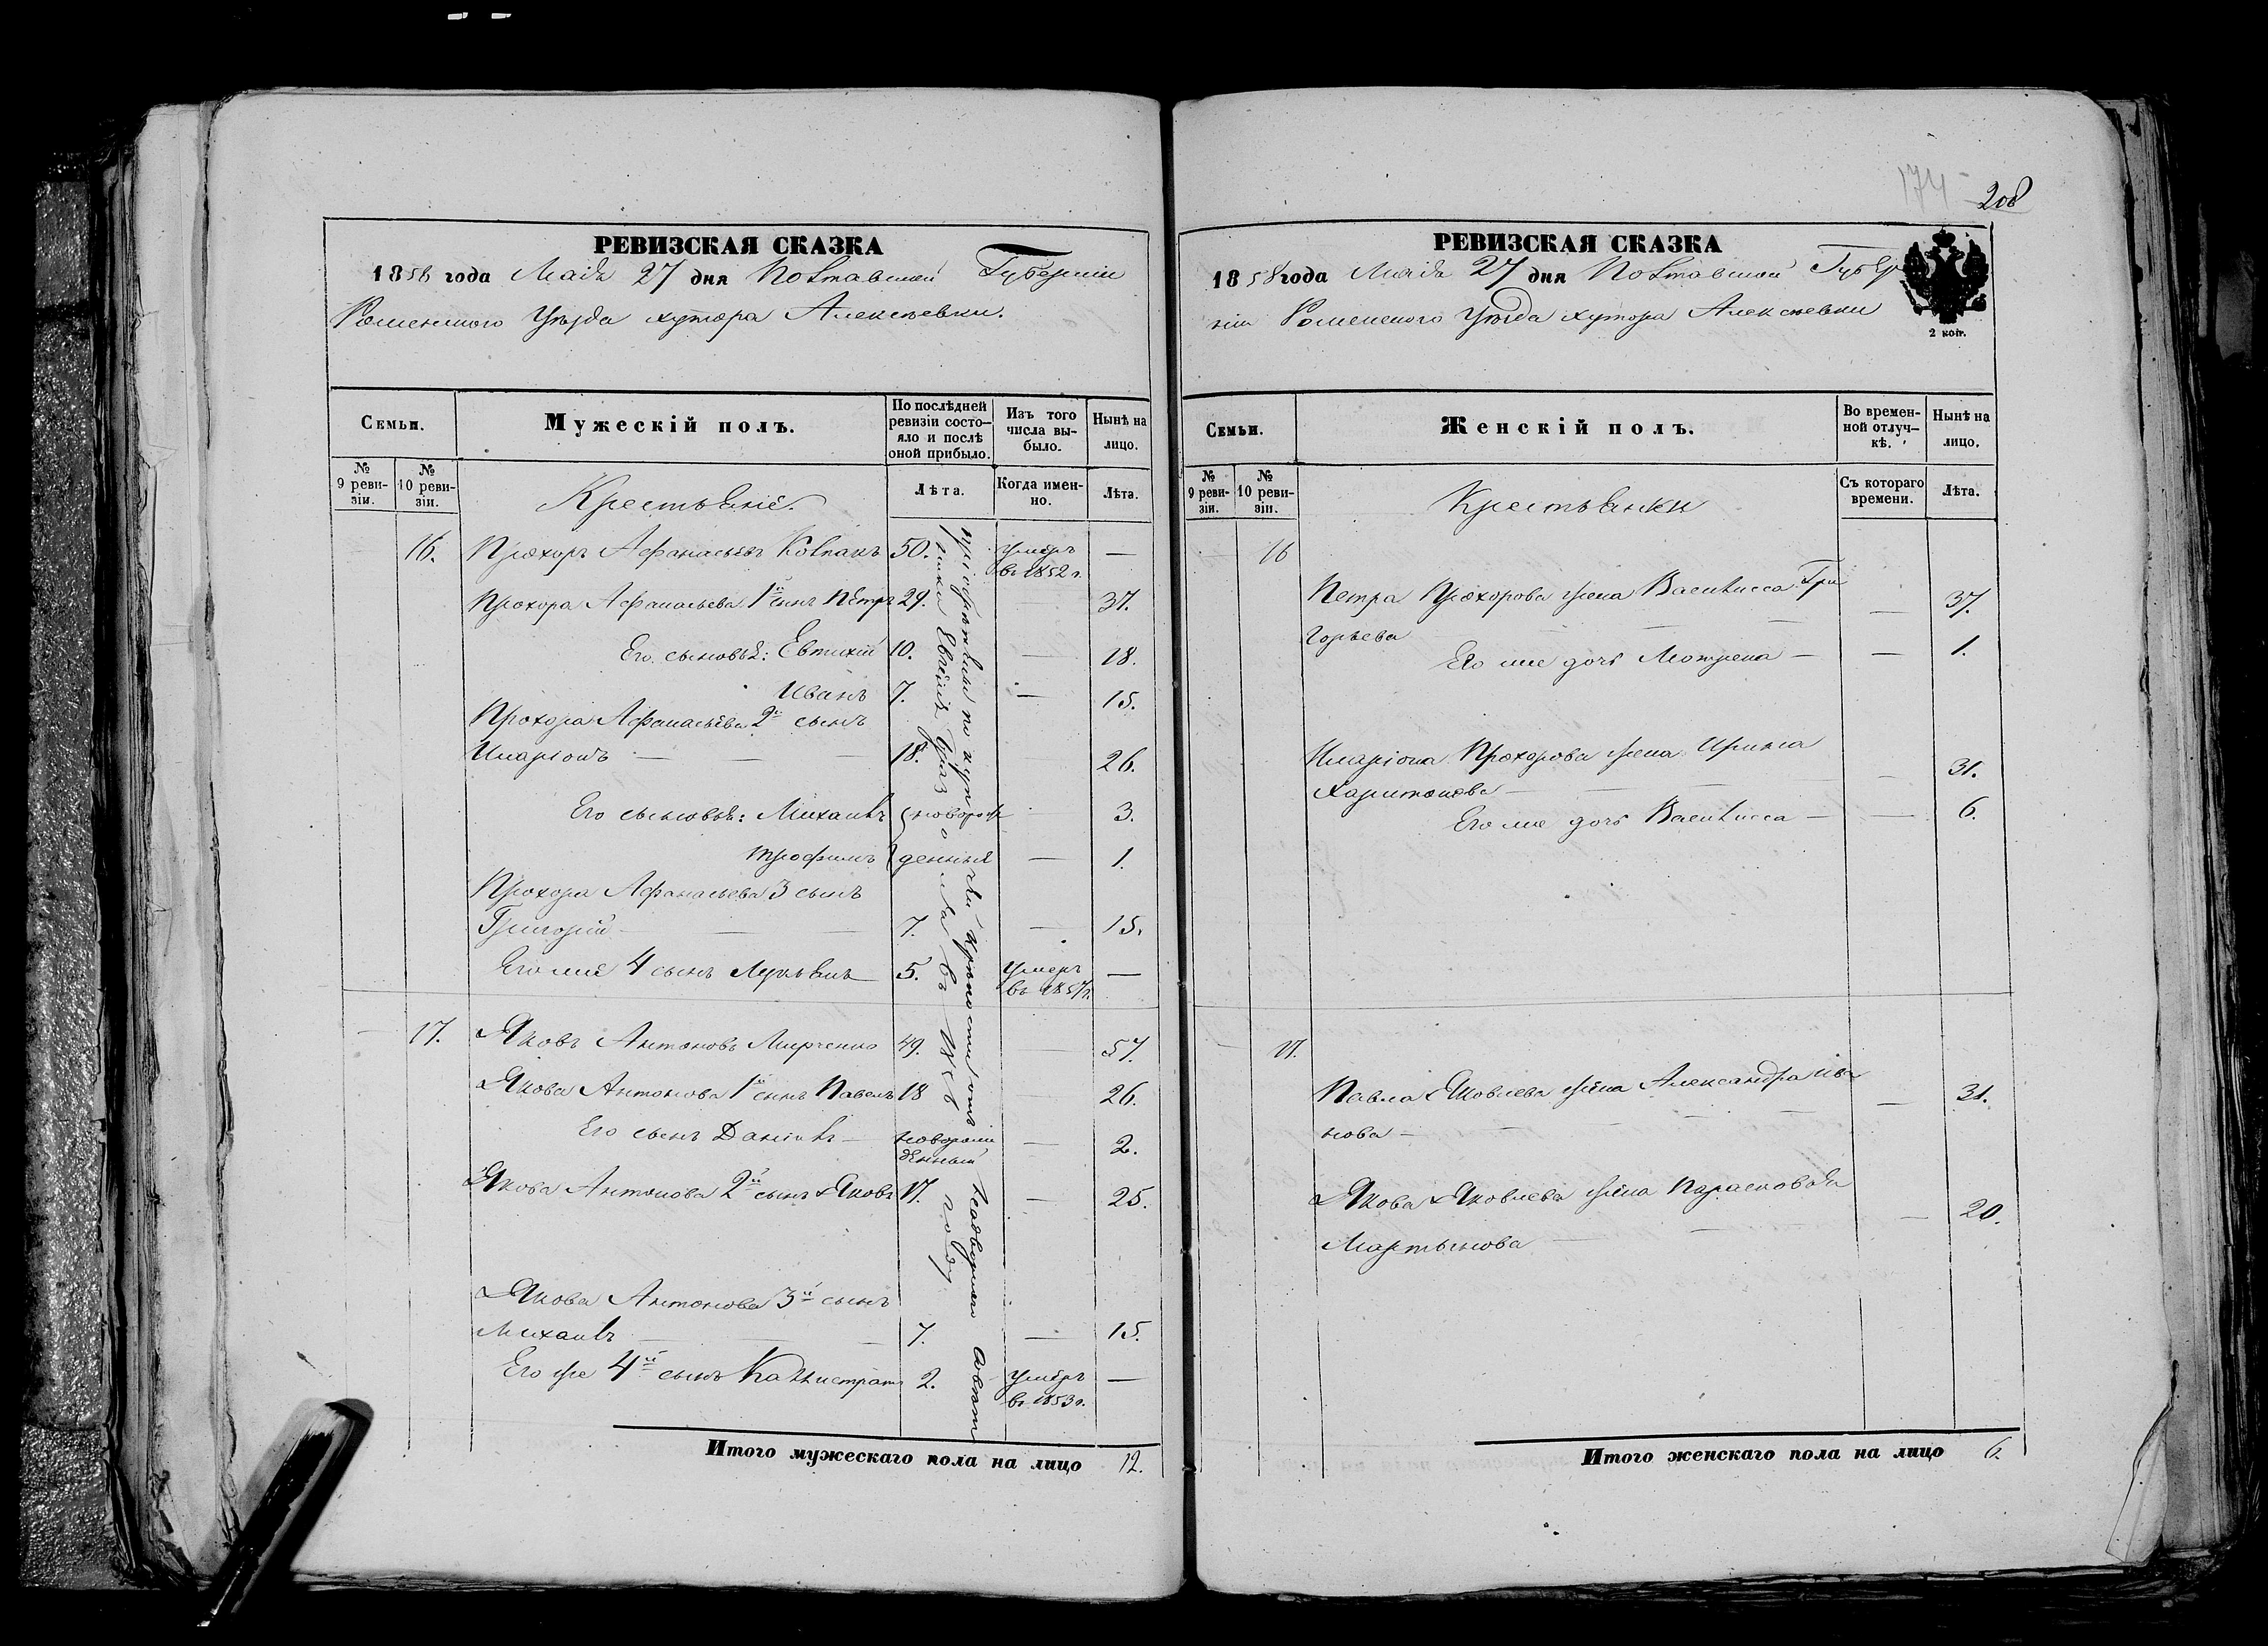 174
208
РЕВИЗСКАЯ СКАЗКА
1858 года Маія 27 дня Полтавской Губерніи
Роменского Уѣзда хутора Алексѣевки.
Семьи.
Мужескій полъ.
По послѣдней ревизіи состо-
яло и послѣ оной прибыло.
Изъ того числа вы-
было.
Нынѣ на лицо.
№ 9 реви-
зіи.
№ 10 реви-
зіи.
Крестьяне.
Лѣта.
Когда имен-
но.
Лѣта.
16. Прохоръ Афанасьевъ Колпакъ 50. умеръ —
въ 1852 г.
Прохора Афанасьева 1й сынъ Петръ 29. — 37.
Его сыновья: Евтихій 10. — 18.
Иванъ 7. — 15.
Прохора Афанасьева 2й сынъ
Иларіонъ — — 18. 26.
Его сыновья: Михаилъ новорож 3.
Трофимъ денныя — 1.
Прохора Афанасьева 3 сынъ
Григорій — — — 7. — 15.
Его же 4 сынъ Лукьянъ 5. умеръ —
въ 1857 г.
— 17. Яковъ Антоновъ Мирченко 49. — 57.
Якова Антонова 1й сынъ Павелъ 18 — 26.
Его сынъ Даніилъ — новорож — 2.
денный
Якова Антонова 2й сынъ Яковъ 17. — 25.
Якова Антонова 3й сынъ
Михаилъ — — — 7. — 15.
Его же 4й сынъ Калистратъ 2. умеръ —
въ 1853 г.
по куп
чей крѣпости отъ
Евгенія
въ
году
Итого мужескаго пола на лицо 12.
РЕВИЗСКАЯ СКАЗКА
1858 года Маія 27 дня Полтавской Губер
ніи Роменского Уѣзда хутора Алексѣевки
2 коп.
Семьи.
Женскій полъ.
Во времен-
ной отлуч-
кѣ.
Нынѣ на лицо.
№ 9 реви-
зіи.
№ 10 реви-
зіи.
Крестьянки
Съ котораго времени.
Лѣта.
16
Петра Прохорова жена Василиса Гри — 37.
горьева — — —
Его же дочь Мотрена — — 1.
Иларіона Прохорова жена Ирина — 31.
Харитонова — — —
Его же дочь Василиса — — 6.
— 17.
Павла Яковлева жена Александра Ива — 31.
нова — — — —
Якова Яковлева жена Парасковія — 20.
Мартынова — —
Итого женскаго пола на лицо 6.